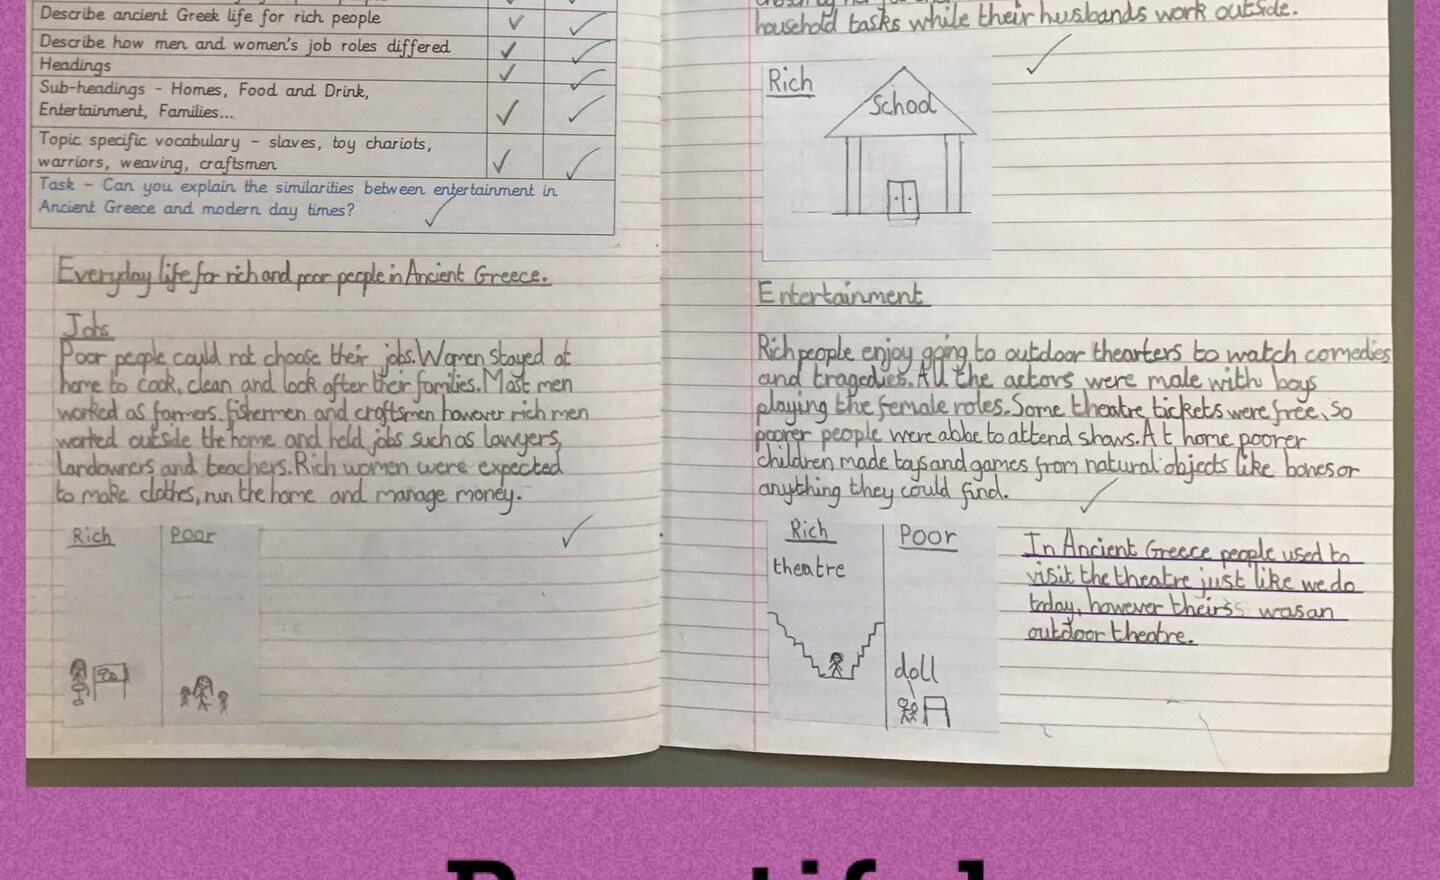 Describe ancient Greek life for rich people
Describe how men and women's job roles differed
Headings
Sub-headings - Homes, Food and Drink,
Entertainment, Families...
Topic specific vocabulary - slaves, toy chariots,
warriors, weaving, craftsmen
Task - Can you explain the similarities between entertainment in
Ancient Greece and modern day times?
Everyday life for rich and poor people in Ancient Greece.
Jobs
Poor people could not choose their jobs. Women stayed at
home to cook, clean and look after their families. Most men
worked as farmers. fishermen and craftsmen however rich men
worked outside the home and held jobs such as lawyers,
landowners and teachers. Rich women were expected
to make clothes, run the home and manage money.
Rich
Poor
household tasks while their husbands work outside.
Rich
School
Entertainment
Rich people enjoy going to outdoor thearters to watch comedies
and tragedies. All the actors were male with boys
playing the female roles. Some theatre tickets were free, so
poorer people were abbe to attend shows. At home poorer
children made toys and games from natural objects like bones or
anything they could find.
Rich
theatre
Poor
doll
In Ancient Greece people used to
visit the theatre just like we do
today, however theirs was an
outdoor theatre.